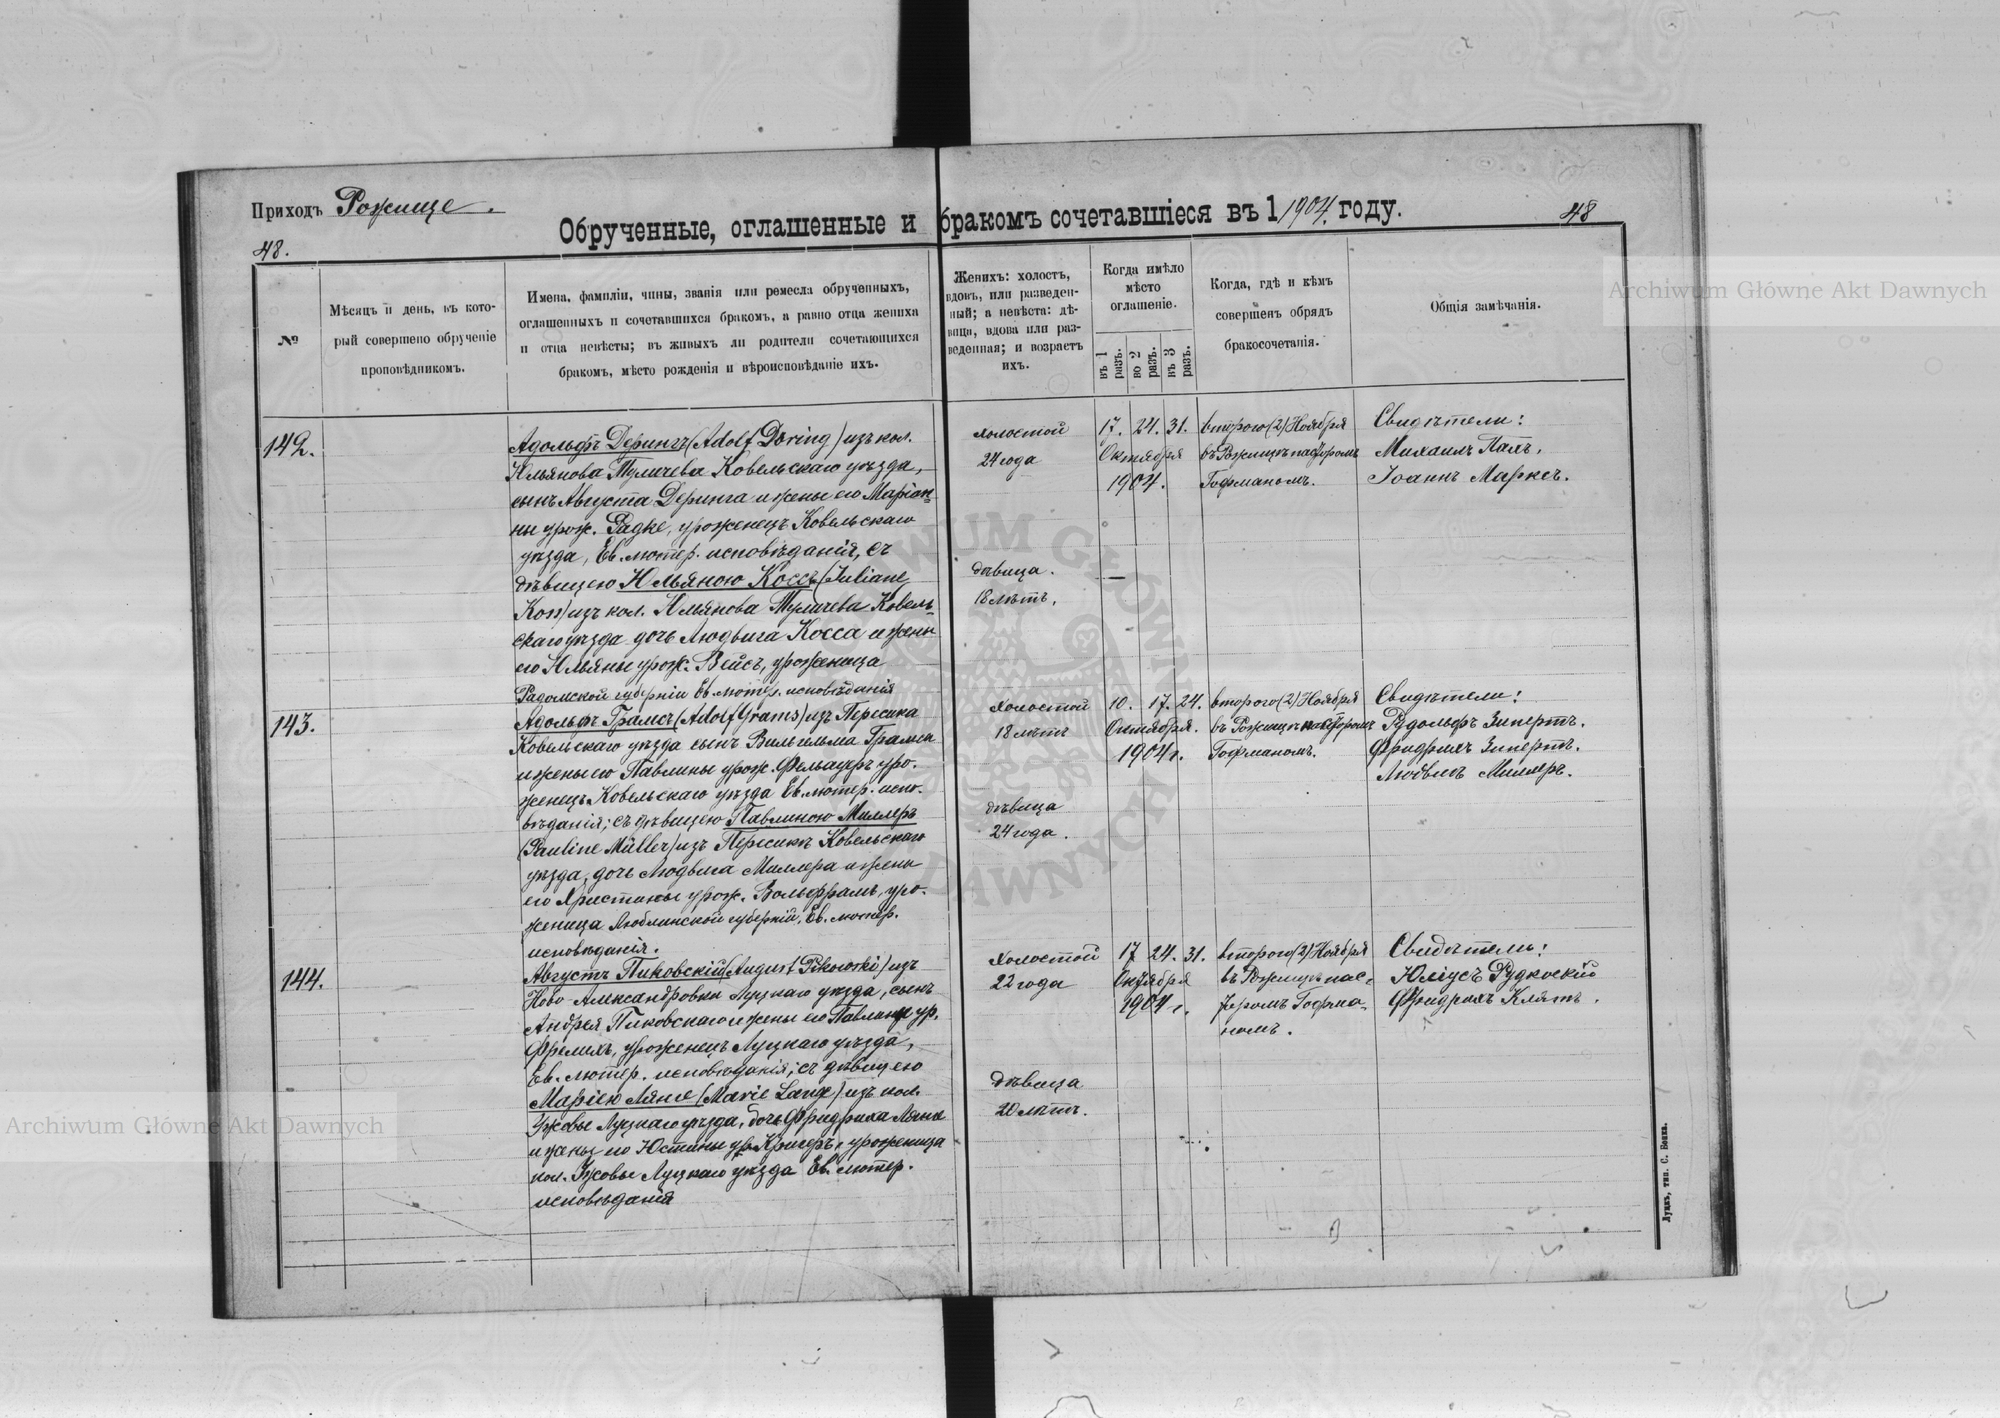 Приходъ Рожище.
Обрученные, оглашенные и бракомъ сочетавшіеся въ 1 1904. году.
48.
48
№
Мѣсяцъ и день, въ кото-
рый совершено обрученіе
проповѣдникомъ.
Имена, фамиліи, чины, званія или ремесла обрученныхъ,
оглашенныхъ и сочетавшихся бракомъ, а равно отца жениха
и отца невѣсты; въ живыхъ ли родители сочетающихся
бракомъ, мѣсто рожденія и вѣроисповѣданіе ихъ.
Женихъ: холостъ,
вдовъ, или разведен-
ный; а невѣста: дѣ-
вица, вдова или раз-
веденная; и возрастъ
ихъ.
Когда имѣло
мѣсто
оглашеніе.
въ 1 разъ.
во 2 разъ.
въ 3 разъ.
Когда, гдѣ и кѣмъ
совершенъ обрядъ
бракосочетанія.
Общія замѣчанія.
142.
Адольфъ Дерингъ (Adolf Döring) изъ кол.
Юльянова Туличева Ковельскаго уѣзда,
сынъ Августа Деринга и жены его Маріан-
ны урож. Радке, уроженецъ Ковельскаго
уѣзда, Ев. лютер. исповѣданія, съ
дѣвицею Юльяною Коссъ (Juliane
Koss) изъ кол. Юльянова Туличева Ковель-
скаго уѣзда дочь Людвига Косса и жены
его Юльяны урож. Вейсъ, уроженица
Радомской губерніи Ев. лютер. исповѣданія
холостой
24 года
дѣвица.
18 лѣтъ,
17. 24. 31.
Октября
1904.
второго (2) Ноября
въ Рожищѣ пасторомъ
Гофманомъ.
Свидѣтели:
Михаилъ Пахъ,
Іоаннъ Марксъ.
143.
Адольфъ Грамсъ (Adolf Grams) изъ Пересика
Ковельскаго уѣзда сынъ Вильгельма Грамса
и жены его Павлины урож. Фельауеръ уро-
женецъ Ковельскаго уѣзда Ев. лютер. испо-
вѣданія; съ дѣвицею Павлиною Миллеръ
(Pauline Müller) изъ Пересикъ Ковельскаго
уѣзда, дочь Людвига Миллера и жены
его Христины урож. Вольфрамъ, уро-
женица Люблинской губерній, Ев. лютер.
исповѣданія.
Холостой
18 лѣтъ
дѣвица
24 года.
10. 17. 24.
Октября.
1904 г.
второго (2) Ноября
въ Рожищѣ пасторомъ
Гофманомъ.
Свидѣтели:
Рудольфъ Зипертъ.
Фридрихъ Зипертъ.
Людвигъ Миллеръ.
144.
Августъ Пиковскій (August Pikowski) изъ
Ново-Александровки Луцкаго уѣзда, сынъ
Андрея Пиковскаго и жены его Павлины ур.
Фрелихъ, уроженецъ Луцкаго уѣзда,
Ев. лютер. исповѣданія; съ дѣвицею
Маріею Лянге (Marie Lange) изъ кол.
Ужовы Луцкаго уѣзда, дочь Фридриха Лянге
и жены его Юстины ур. Кригеръ, уроженица
кол. Ужовы Луцкаго уѣзда Ев. лютер.
исповѣданія
Холостой
22 года
дѣвица
20 лѣтъ.
17 24. 31.
Октября
1904 г.
второго (2) Ноября
въ Рожищѣ пас-
торомъ Гофма-
номъ.
Свидѣтели:
Юліусъ Рудковскій
Фридрихъ Клятъ.
Луцкъ, тип. С. Бокка.
Archiwum Główne Akt Dawnych
Archiwum Główne Akt Dawnych